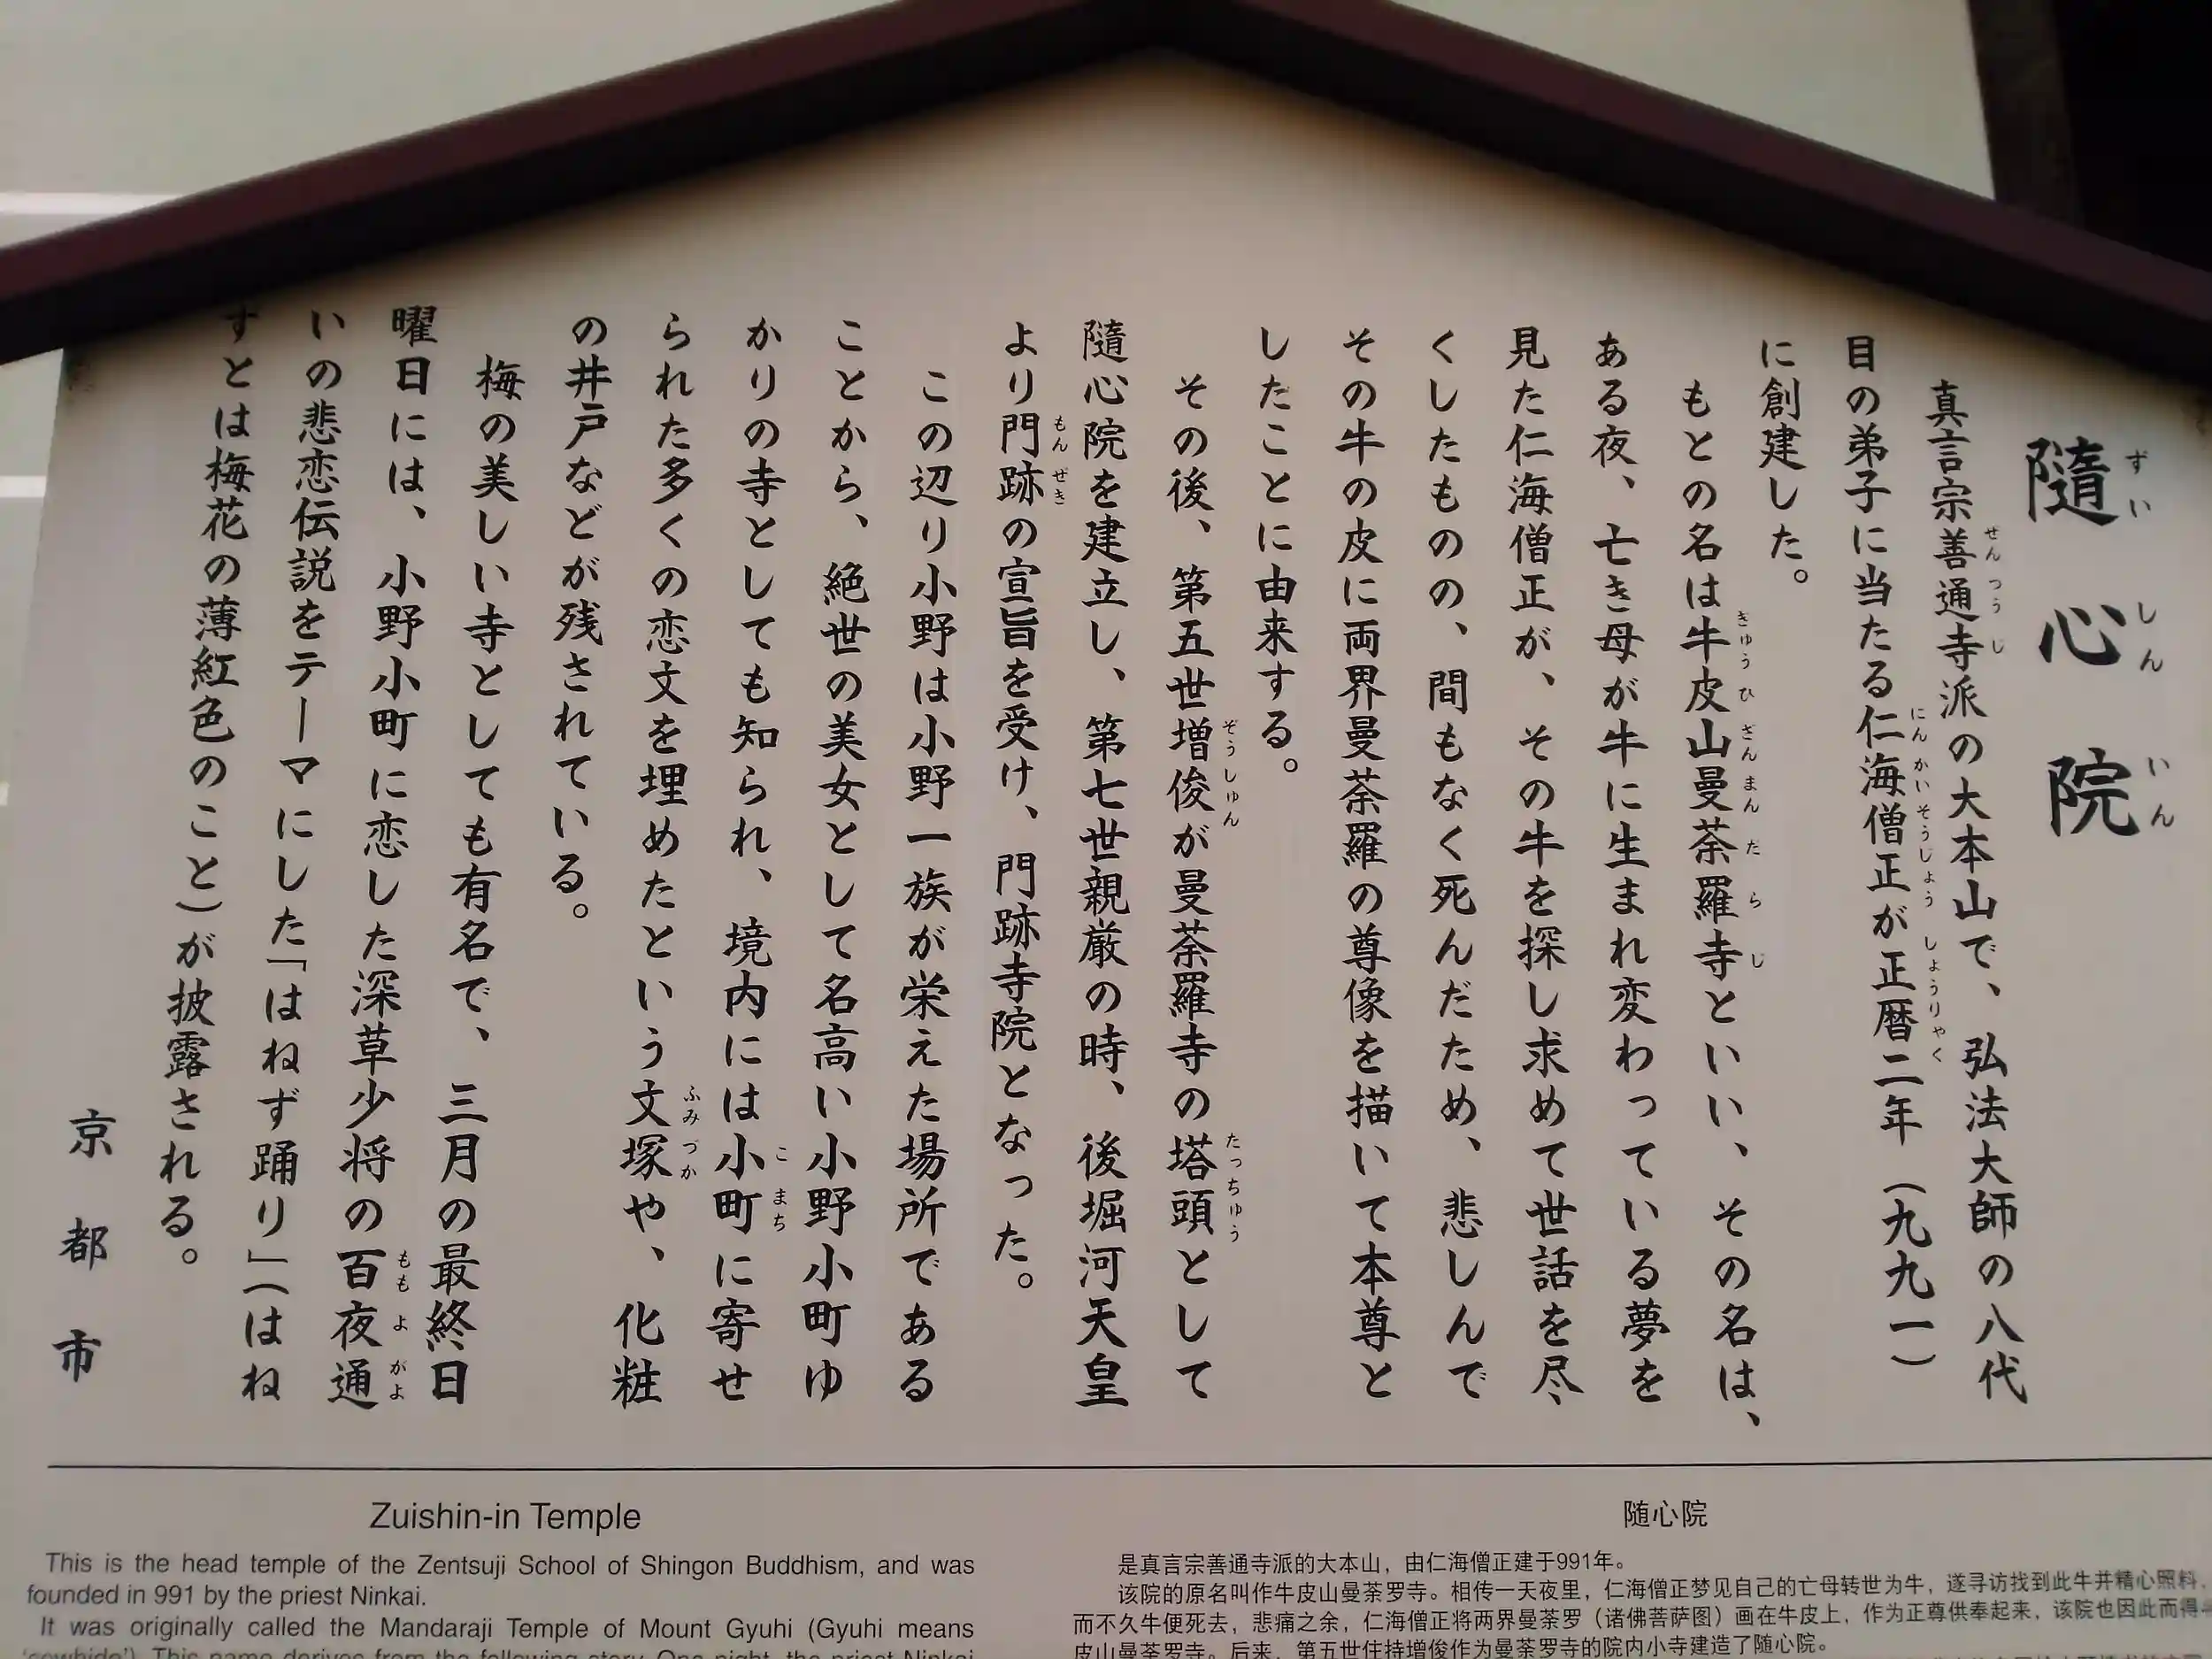 隨心院
真言宗善通寺派の大本山で、弘法大師の八代
目の弟子に当たる仁海僧正が正暦二年（九九一）
に創建した。
もとの名は牛皮山曼荼羅寺といい、その名は、
ある夜、亡き母が牛に生まれ変わっている夢を
見た仁海僧正が、その牛を探し求めて世話を尽
くしたものの、間もなく死んだため、悲しんで
その牛の皮に両界曼荼羅の尊像を描いて本尊と
したことに由来する。
その後、第五世増俊が曼荼羅寺の塔頭として
隨心院を建立し、第七世親厳の時、後堀河天皇
より門跡の宣旨を受け、門跡寺院となった。
この辺り小野は小野一族が栄えた場所である
ことから、絶世の美女として名高い小野小町ゆ
かりの寺としても知られ、境内には小町に寄せ
られた多くの恋文を埋めたという文塚や、化粧
の井戸などが残されている。
梅の美しい寺としても有名で、三月の最終日
曜日には、小野小町に恋した深草少将の百夜通
いの悲恋伝説をテーマにした「はねず踊り」（はね
ずとは梅花の薄紅色のこと）が披露される。
京都市
Zuishin-in Temple
This is the head temple of the Zentsuji School of Shingon Buddhism, and was
founded in 991 by the priest Ninkai.
It was originally called the Mandaraji Temple of Mount Gyuhi (Gyuhi means
'cowhide'). This name derives from the following story. One night, the priest Ninkai
随心院
是真言宗善通寺派的大本山，由仁海僧正建于991年。
该院的原名叫作牛皮山曼荼罗寺。相传一天夜里，仁海僧正梦见自己的亡母转世为牛，遂寻访找到此牛并精心照料，
而不久牛便死去，悲痛之余，仁海僧正将两界曼荼罗（诸佛菩萨图）画在牛皮上，作为正尊供奉起来，该院也因此而得
皮山曼荼罗寺。后来，第五世住持增俊作为曼荼罗寺的院内小寺建造了随心院。